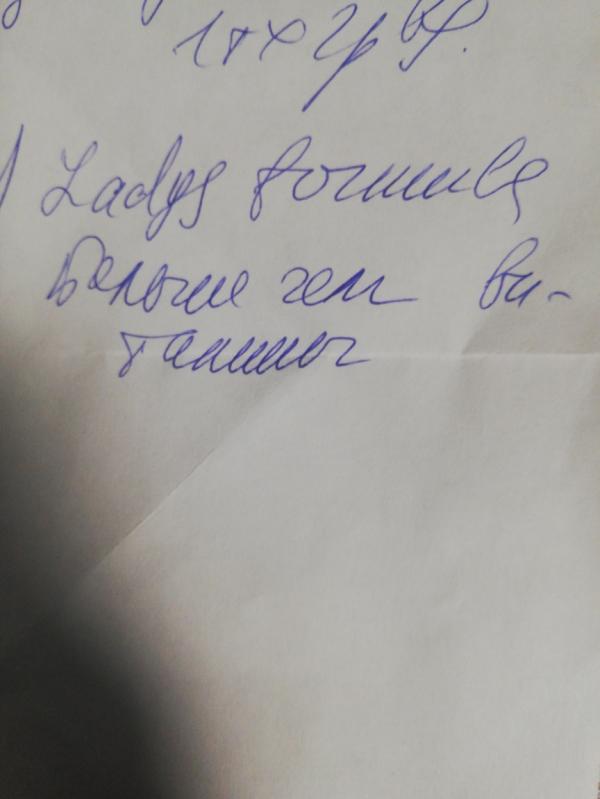 1т х 2р в/
Ladys formula
Больше чем ви-
тамины